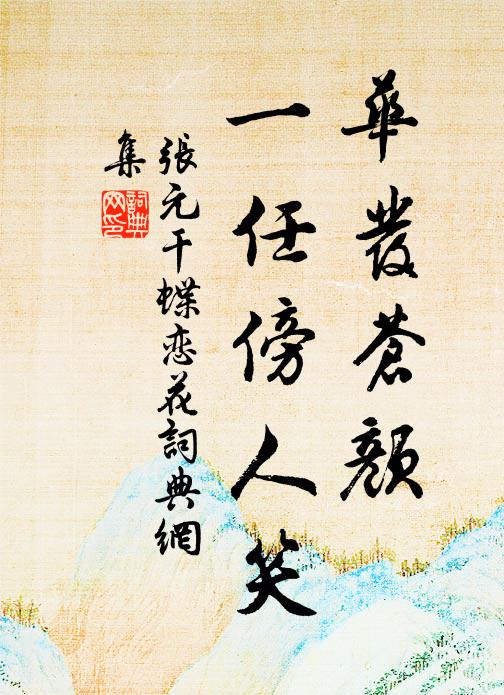 華發蒼顏
一任傍人笑
張元干蝶恋花詞典網
集
詞典
网印